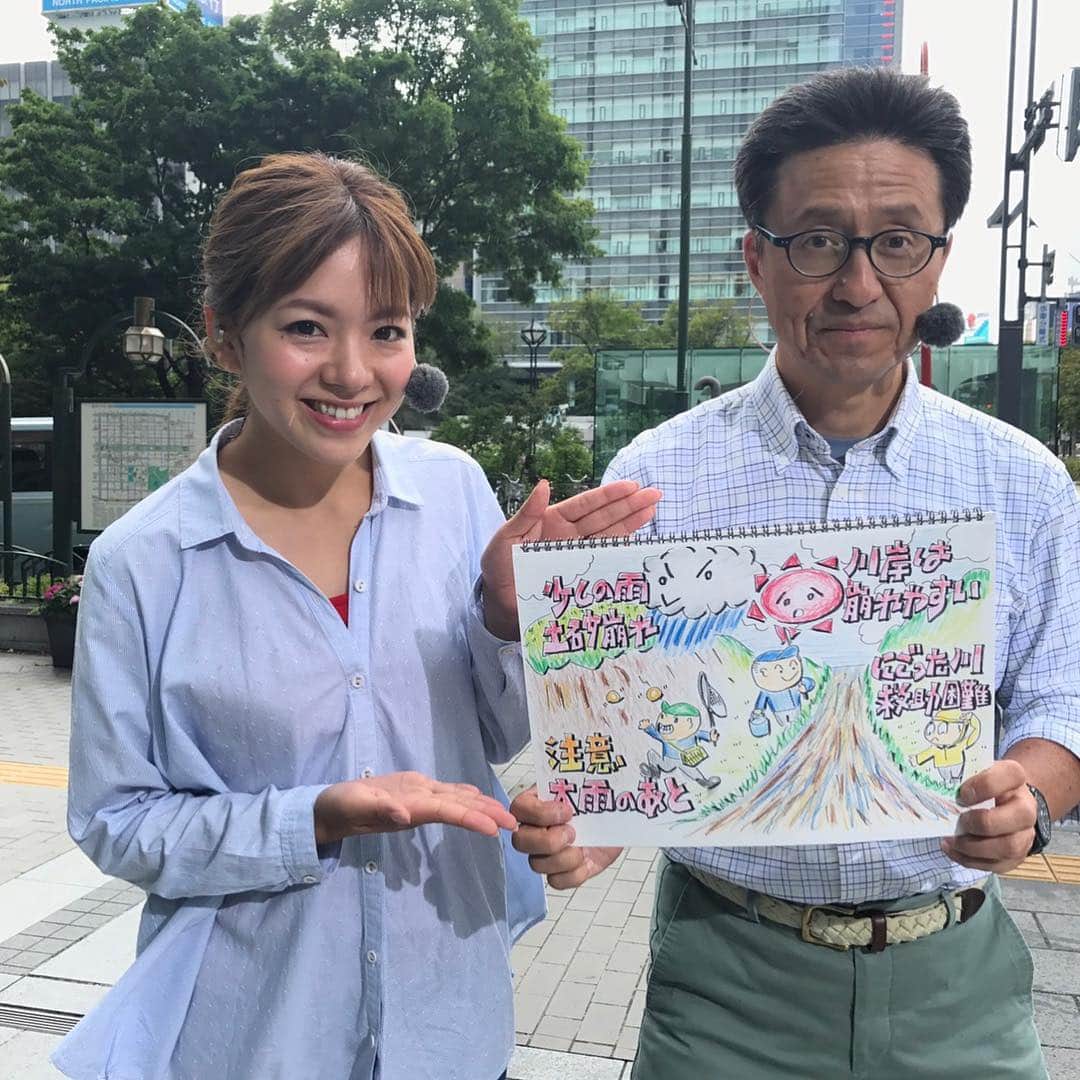 NORTH PACIFIC
少しの雨
土砂崩れ
川岸は
崩れやすい
にごった川
救助困難
注意
大雨のあと